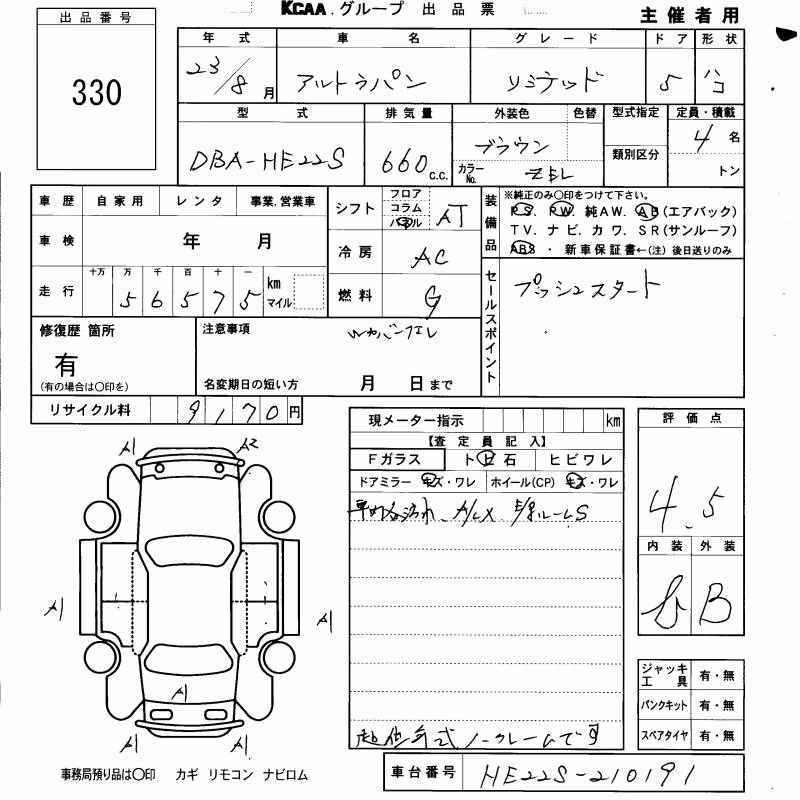 KCAA.グループ 出品票
主催者用
出品番号
330
年式 車名 グレード ドア 形状
23/8月 アルトラパン リミテッド 5 ハコ
型式 排気量 外装色 色替 型式指定 定員・積載
DBA-HE22S 660 c.c. ブラウン 4名
カラーNo. ZEL 類別区分 トン
車歴 自家用 レンタ 事業.営業車
シフト フロア コラム パネル AT
装備品
※純正のみ〇印をつけて下さい。
PS. PW. 純AW. AB(エアバック)
TV. ナビ. カワ. SR(サンルーフ)
ABS ・ 新車保証書←(注)後日送りのみ
車検 年 月
冷房 AC
走行 十万 万 千 百 十 一
56575 km マイル
燃料 G
セールスポイント
プッシュスタート
修復歴 箇所
有
(有の場合は〇印を)
注意事項
名変期日の短い方 月 日まで
リサイクル料 9170円
現メーター指示 km
【査定員記入】
Fガラス ト ビ 石 ヒビワレ
ドアミラー キズ・ワレ ホイール(CP) キズ・ワレ
評価点
4.5
内装 外装
B
A1 A2
A1 A1
A1
A1 A1
ジャッキ工具 有・無
パンクキット 有・無
スペアタイヤ 有・無
超低年式ノークレームです
事務局預り品は〇印 カギ リモコン ナビロム
車台番号 HE22S-210191